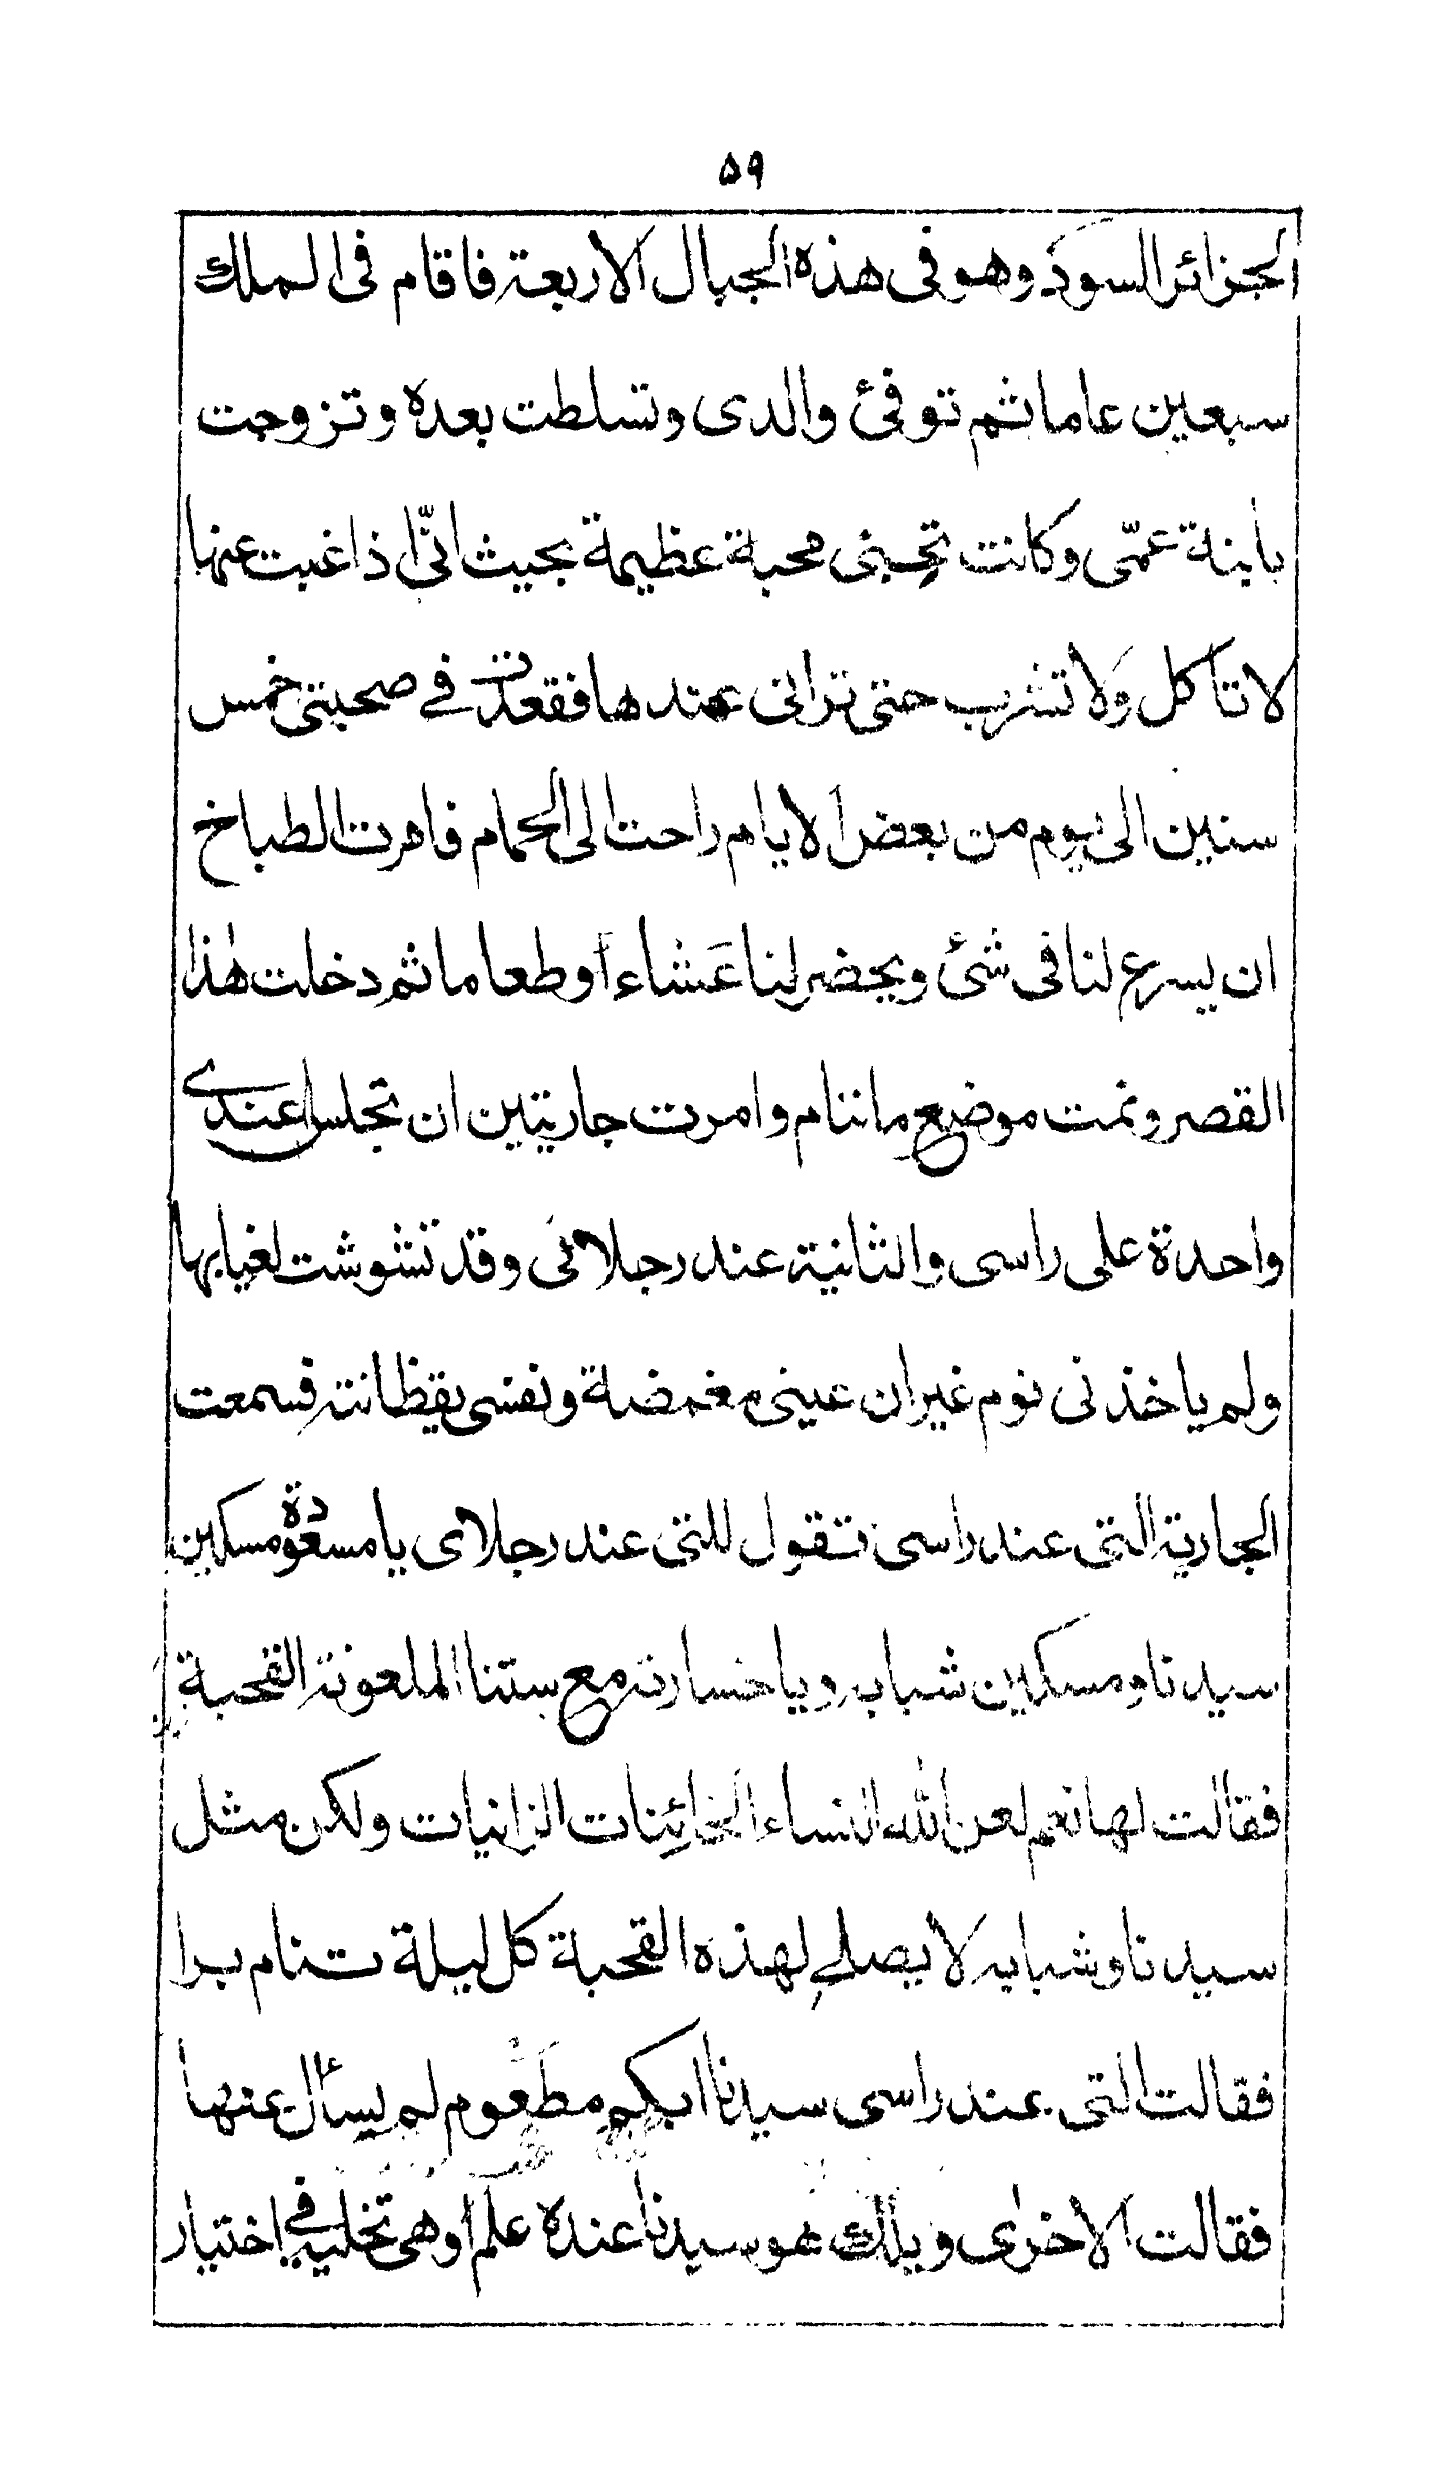 ۵۹
الجزائر السود وهو فى هذه الجبال الاربعة فاقام فى الملك
سبعين عاما ثم توفئ والدى وتسلطت بعده وتزوجت
بابنة عمّى وكانت تحبنى محبة عظيمة بحيث انّى اذا غبت عنها
لا تاكل ولا تشرب حتى ترانى عندها فقعدت فے صحبتى خمس
سنين الى يوم من بعض الايام راحت الى الحمام فامرت الطباخ
ان يسرع لنا فى شئ ويحضر لنا عَشاء أو طعاما ثم دخلت هٰذا
القصر ونمت موضع ما ننام وامرت جاريتين ان تجلسا عندے
واحدة على راسى والثانية عند رجلائى وقد تشوشت لغيابها
ولم ياخذنى نوم غير ان عينى مغمضة ونفسى يقظانة فسمعت
الجارية التى عند راسى تقول للتى عند رجلاى يا مسعودة مسكين
سيدنا ومسكين شبابه ويا خسارته مع ستنا الملعونة القحبة
فقالت لها نعم لعن الله النساء الخائنات الزانيات ولكن مثل
سيدنا وشبابه لا يصلے لهذه القحبة كل ليلة تنام برا
فقالت التى عند راسى سيدنا ابكم مطعوم لم يسأل عنها
فقالت الاخرى ويلك هو سيدنا عنده علم او هى تخليه فے اختيار